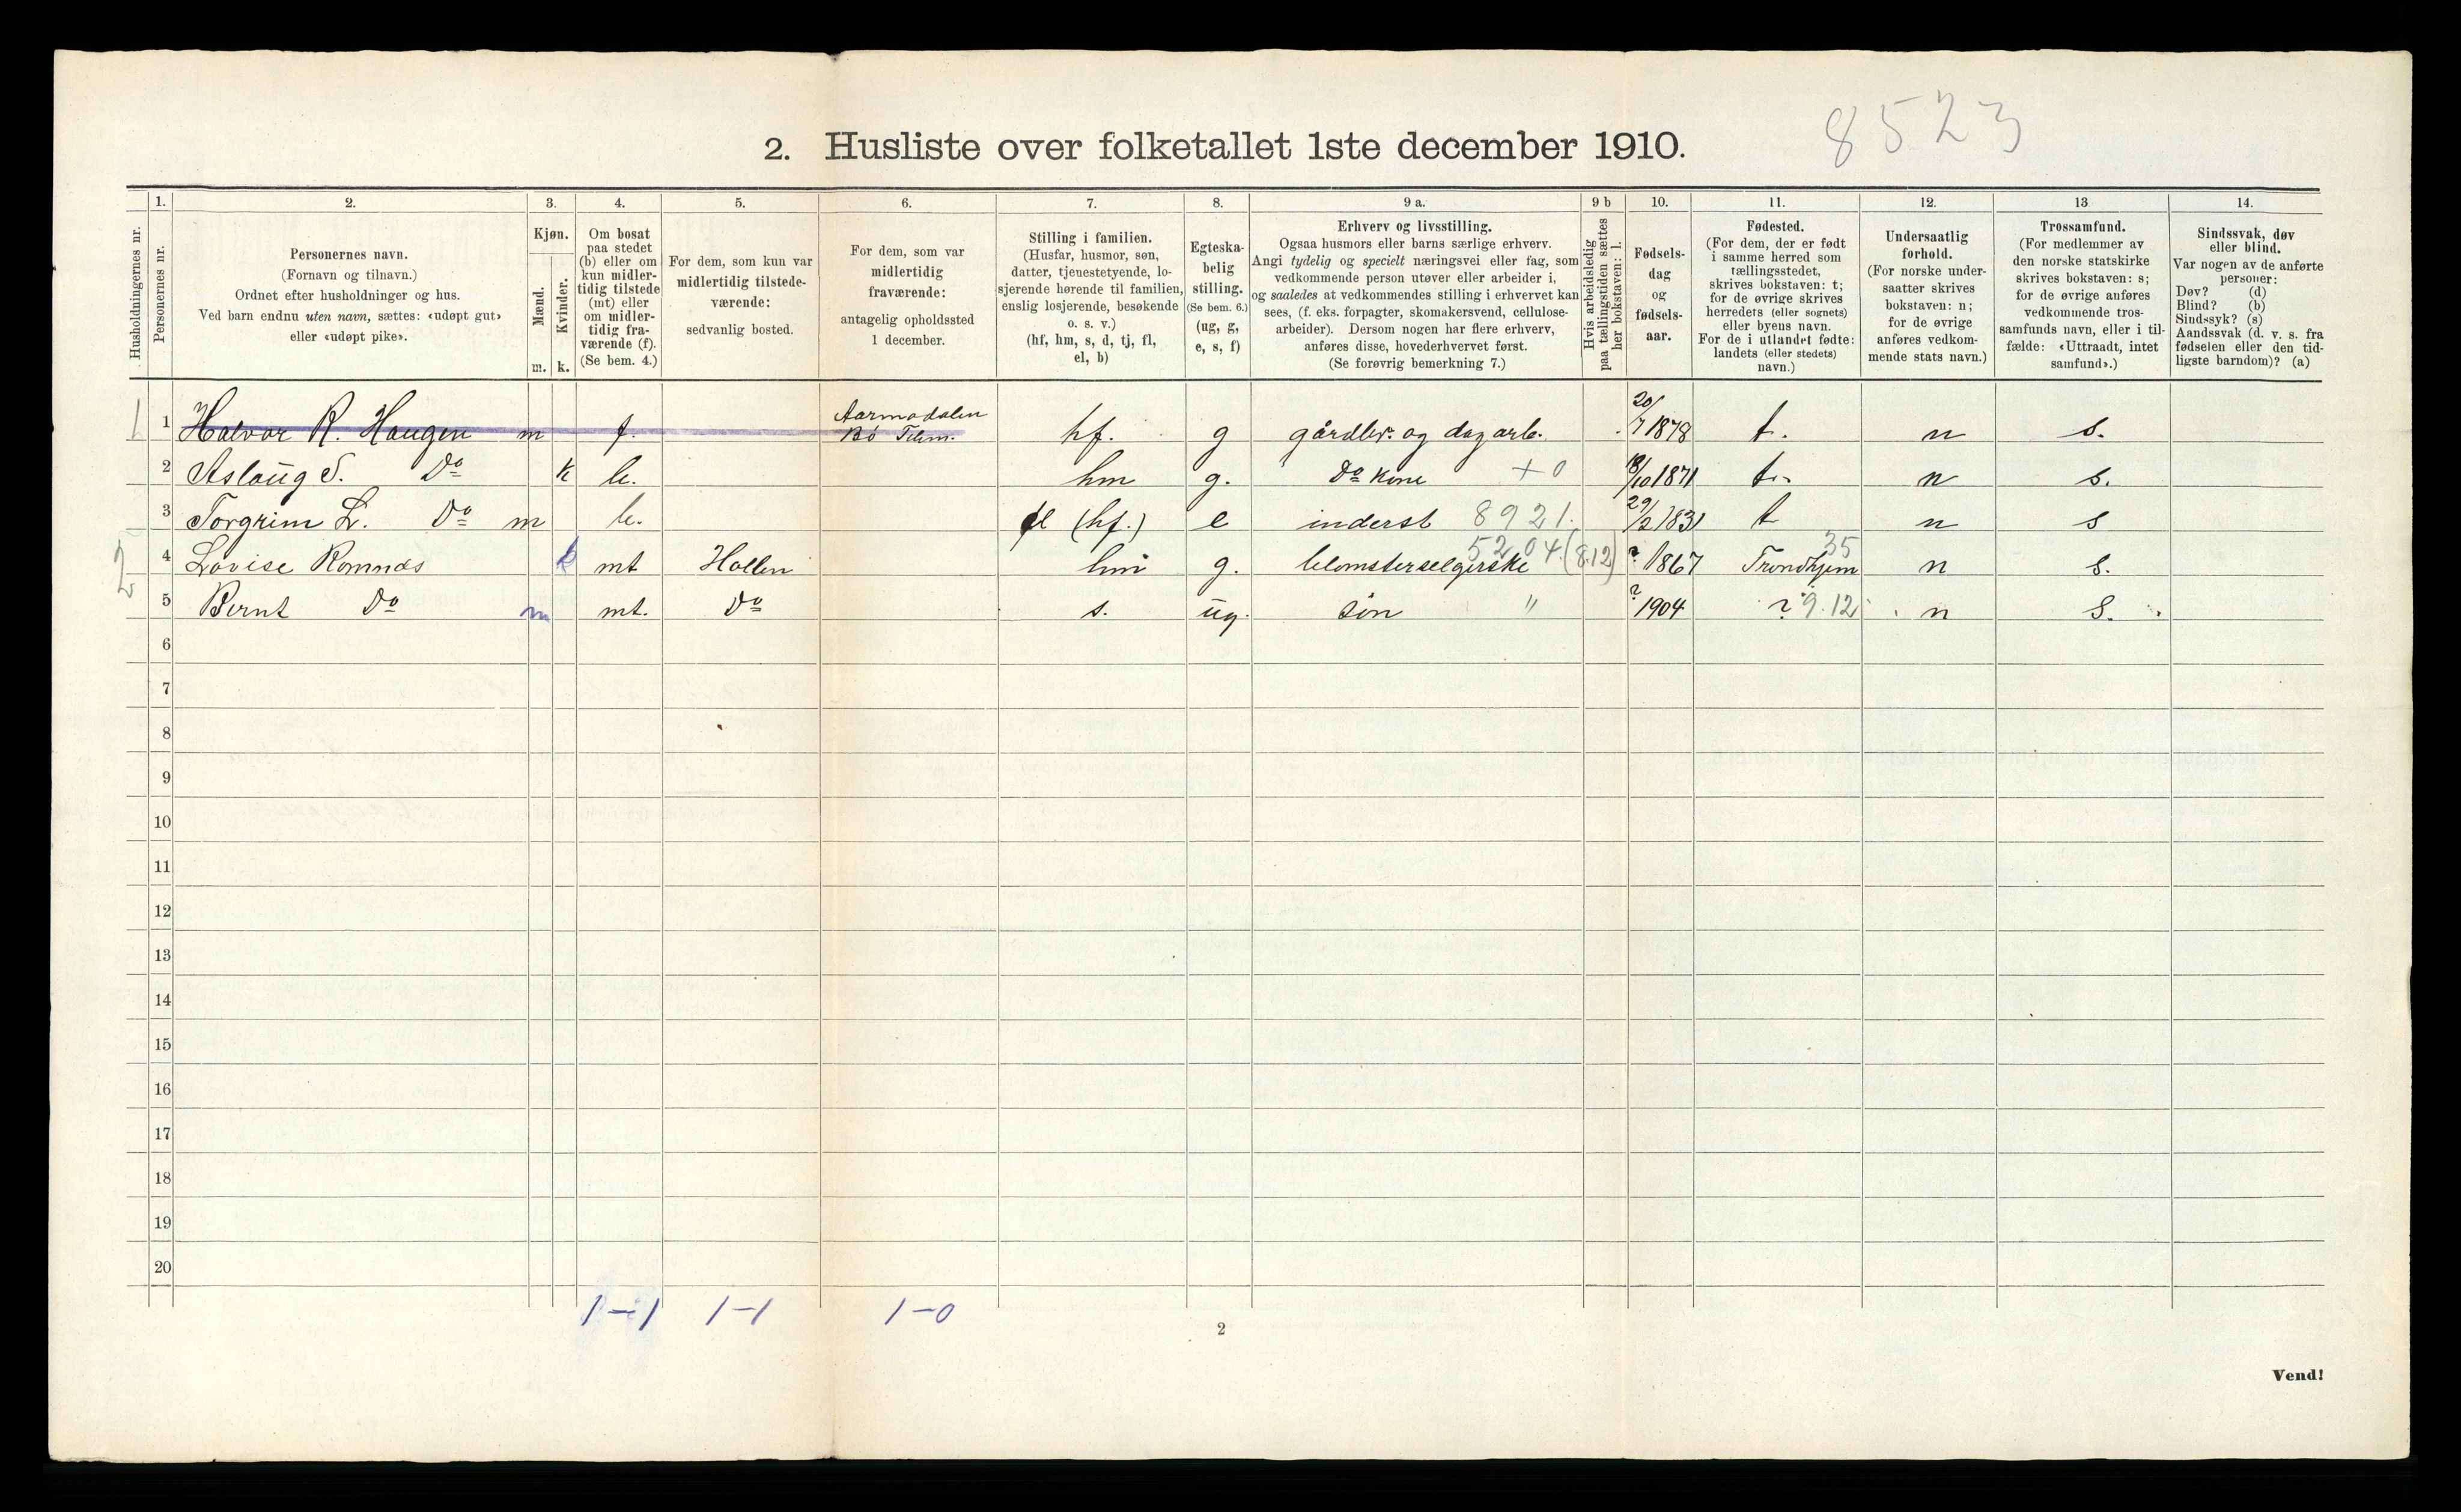 8523
2. Husliste over folketallet 1ste december 1910.
Husholdningernes nr.
1.
Personernes nr.
2.
Personernes navn.
(Fornavn og tilnavn.)
Ordnet efter husholdninger og hus.
Ved barn endnu uten navn, sættes: «udøpt gut»
eller «udøpt pike».
3.
Kjøn.
Mænd.
Kvinder.
m. k.
4.
Om bosat
paa stedet
(b) eller om
kun midler-
tidig tilstede
(mt) eller
om midler-
tidig fra-
værende (f).
(Se bem. 4.)
5.
For dem, som kun var
midlertidig tilstede-
værende:
sedvanlig bosted.
6.
For dem, som var
midlertidig
fraværende:
antagelig opholdssted
1 december.
7.
Stilling i familien.
(Husfar, husmor, søn,
datter, tjenestetyende, lo-
sjerende hørende til familien,
enslig losjerende, besøkende
o. s. v.)
(hf, hm, s, d, tj, fl,
el, b)
8.
Egteska-
belig
stilling.
(Se bem. 6.)
(ug, g,
e, s, f)
9 a.
Erhverv og livsstilling.
Ogsaa husmors eller barns særlige erhverv.
Angi tydelig og specielt næringsvei eller fag, som
vedkommende person utøver eller arbeider i,
og saaledes at vedkommendes stilling i erhvervet kan
sees, (f. eks. forpagter, skomakersvend, cellulose-
arbeider). Dersom nogen har flere erhverv,
anføres disse, hovederhvervet først.
(Se forøvrig bemerkning 7.)
9 b
Hvis arbeidsledig
paa tællingstiden sættes
her bokstaven: l.
10.
Fødsels-
dag
og
fødsels-
aar.
11.
Fødested.
(For dem, der er født
i samme herred som
tællingsstedet,
skrives bokstaven: t;
for de øvrige skrives
herredets (eller sognets)
eller byens navn.
For de i utlandet fødte:
landets (eller stedets)
navn.)
12.
Undersaatlig
forhold.
(For norske under-
saatter skrives
bokstaven: n;
for de øvrige
anføres vedkom-
mende stats navn.)
13
Trossamfund.
(For medlemmer av
den norske statskirke
skrives bokstaven: s;
for de øvrige anføres
vedkommende tros-
samfunds navn, eller i til-
fælde: «Uttraadt, intet
samfund».)
14.
Sindssvak, døv
eller blind.
Var nogen av de anførte
personer:
Døv? (d)
Blind? (b)
Sindssyk? (s)
Aandssvak (d. v. s. fra
fødselen eller den tid-
ligste barndom)? (a)
1 1 Halvor R. Haugen m f. Bø Telem. hf. g gårdbr. og dagarb. 20/7 1878 t. n s.
2 Aslaug S. Do k b. hm g. Do kone +0 18/10 1871 t. n s.
3 Torgrim L. Do m b. el (hf.) e inderst 8921. 29/2 1831 t n s
2 4 Lovise Romnæs k mt Hollen hm g. blomsterselgerske 5204.(8.12) ? 1867 Trondhjem 35 n s.
5 Bernt Do m mt. Do s. ug. søn " ? 1904 ? 9.12 n S.
6
7
8
9
10
11
12
13
14
15
16
17
18
19
20
1-1 1-1 1-0
2
Vend!